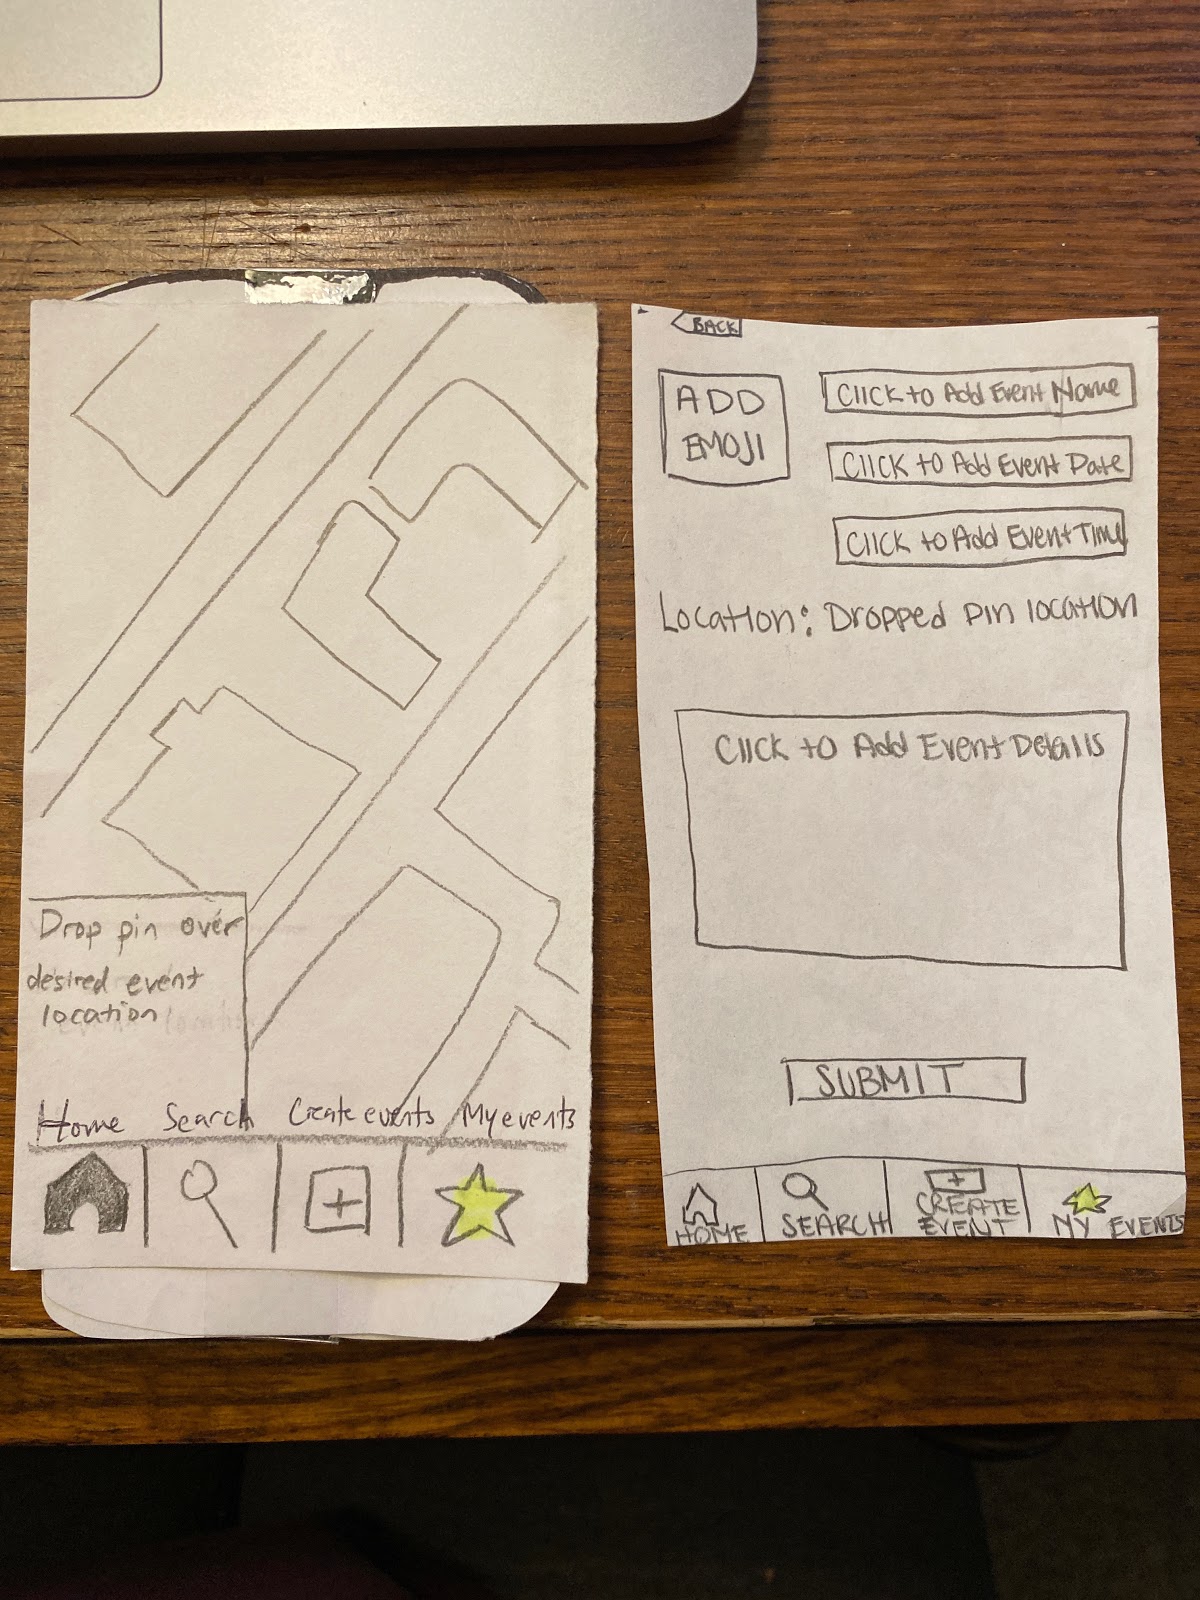 Drop pin over
desired event
location
Home Search Create events My events
BACK
ADD
EMOJI
Click to Add Event Name
Click to Add Event Date
Click to Add Event Time
Location: Dropped pin location
Click to Add Event Details
SUBMIT
HOME
SEARCH
CREATE
EVENT
MY EVENTS